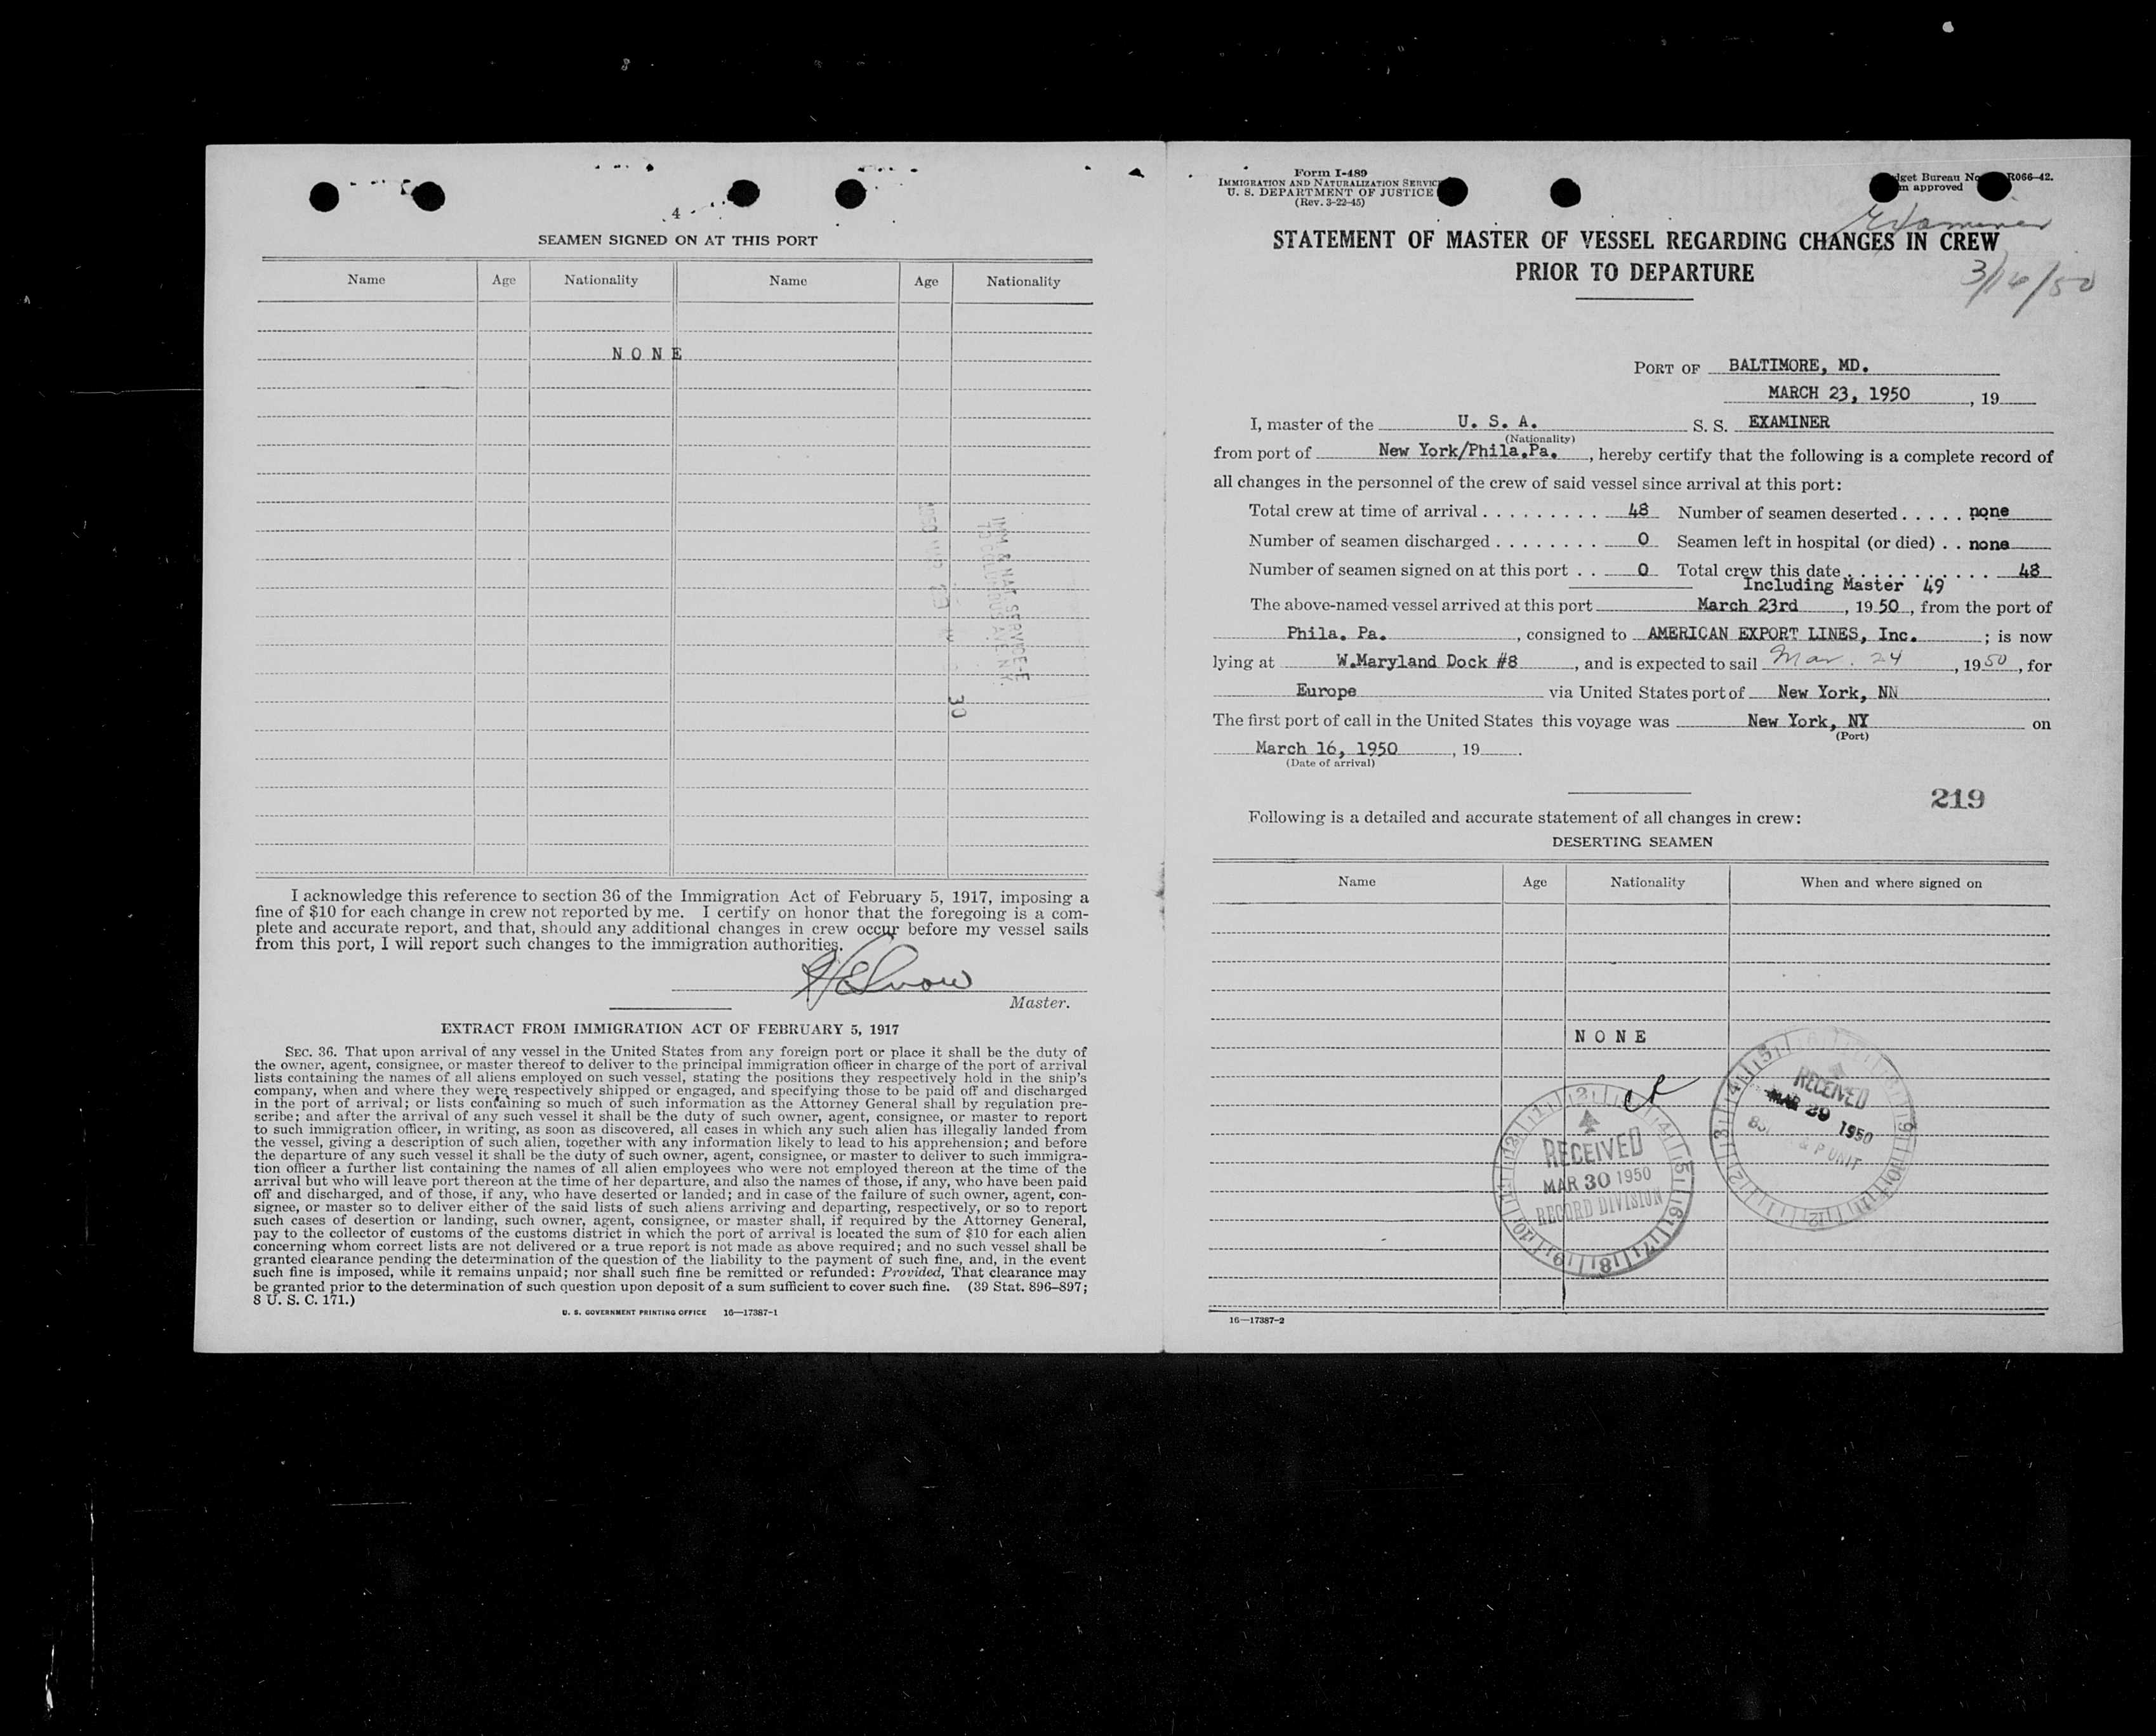 4
SEAMEN SIGNED ON AT THIS PORT
Name Age Nationality Name Age Nationality
NONE
IMM & NAT SERVICE
30
I acknowledge this reference to section 36 of the Immigration Act of February 5, 1917, imposing a
fine of $10 for each change in crew not reported by me. I certify on honor that the foregoing is a com-
plete and accurate report, and that, should any additional changes in crew occur before my vessel sails
from this port, I will report such changes to the immigration authorities.
Master.
EXTRACT FROM IMMIGRATION ACT OF FEBRUARY 5, 1917
SEC. 36. That upon arrival of any vessel in the United States from any foreign port or place it shall be the duty of
the owner, agent, consignee, or master thereof to deliver to the principal immigration officer in charge of the port of arrival
lists containing the names of all aliens employed on such vessel, stating the positions they respectively hold in the ship's
company, when and where they were respectively shipped or engaged, and specifying those to be paid off and discharged
in the port of arrival; or lists containing so much of such information as the Attorney General shall by regulation pre-
scribe; and after the arrival of any such vessel it shall be the duty of such owner, agent, consignee, or master to report
to such immigration officer, in writing, as soon as discovered, all cases in which any such alien has illegally landed from
the vessel, giving a description of such alien, together with any information likely to lead to his apprehension; and before
the departure of any such vessel it shall be the duty of such owner, agent, consignee, or master to deliver to such immigra-
tion officer a further list containing the names of all alien employees who were not employed thereon at the time of the
arrival but who will leave port thereon at the time of her departure, and also the names of those, if any, who have been paid
off and discharged, and of those, if any, who have deserted or landed; and in case of the failure of such owner, agent, con-
signee, or master so to deliver either of the said lists of such aliens arriving and departing, respectively, or so to report
such cases of desertion or landing, such owner, agent, consignee, or master shall, if required by the Attorney General,
pay to the collector of customs of the customs district in which the port of arrival is located the sum of $10 for each alien
concerning whom correct lists are not delivered or a true report is not made as above required; and no such vessel shall be
granted clearance pending the determination of the question of the liability to the payment of such fine, and, in the event
such fine is imposed, while it remains unpaid; nor shall such fine be remitted or refunded: Provided, That clearance may
be granted prior to the determination of such question upon deposit of a sum sufficient to cover such fine. (39 Stat. 896–897;
8 U. S. C. 171.)
U. S. GOVERNMENT PRINTING OFFICE 16—17387-1
Form I-489
IMMIGRATION AND NATURALIZATION SERVICE
U. S. DEPARTMENT OF JUSTICE
(Rev. 3-22-45)
get Bureau No R066-42.
approved
Examiner
STATEMENT OF MASTER OF VESSEL REGARDING CHANGES IN CREW
PRIOR TO DEPARTURE
3/16/50
PORT OF BALTIMORE, MD.
MARCH 23, 1950, 19
I, master of the U. S. A. S. S. EXAMINER
(Nationality)
from port of New York/Phila.Pa., hereby certify that the following is a complete record of
all changes in the personnel of the crew of said vessel since arrival at this port:
Total crew at time of arrival . . . . . . . . . . 48 Number of seamen deserted . . . . . none
Number of seamen discharged . . . . . . . . 0 Seamen left in hospital (or died) . . none
Number of seamen signed on at this port . . 0 Total crew this date . . . . . . . . . . . 48
Including Master 49
The above-named vessel arrived at this port March 23rd, 1950, from the port of
Phila. Pa., consigned to AMERICAN EXPORT LINES, Inc.; is now
lying at W.Maryland Dock #8, and is expected to sail Mar. 24, 1950, for
Europe via United States port of New York, NN
The first port of call in the United States this voyage was New York, NY on
(Port)
March 16, 1950, 19.
(Date of arrival)
219
Following is a detailed and accurate statement of all changes in crew:
DESERTING SEAMEN
Name Age Nationality When and where signed on
NONE
RECEIVED
MAR 30 1950
RECORD DIVISION
RECEIVED
MAR 29 1950
& P UNIT
16—17387-2